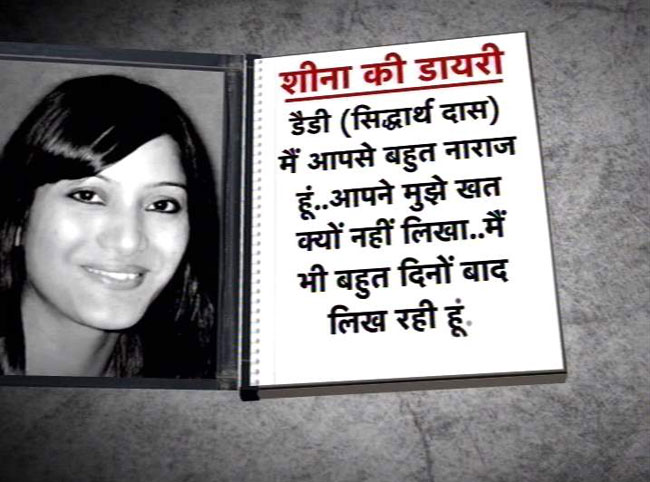 शीना की डायरी
डैडी (सिद्धार्थ दास)
मैं आपसे बहुत नाराज
हूं..आपने मुझे खत
क्यों नहीं लिखा..मैं
भी बहुत दिनों बाद
लिख रही हूं.